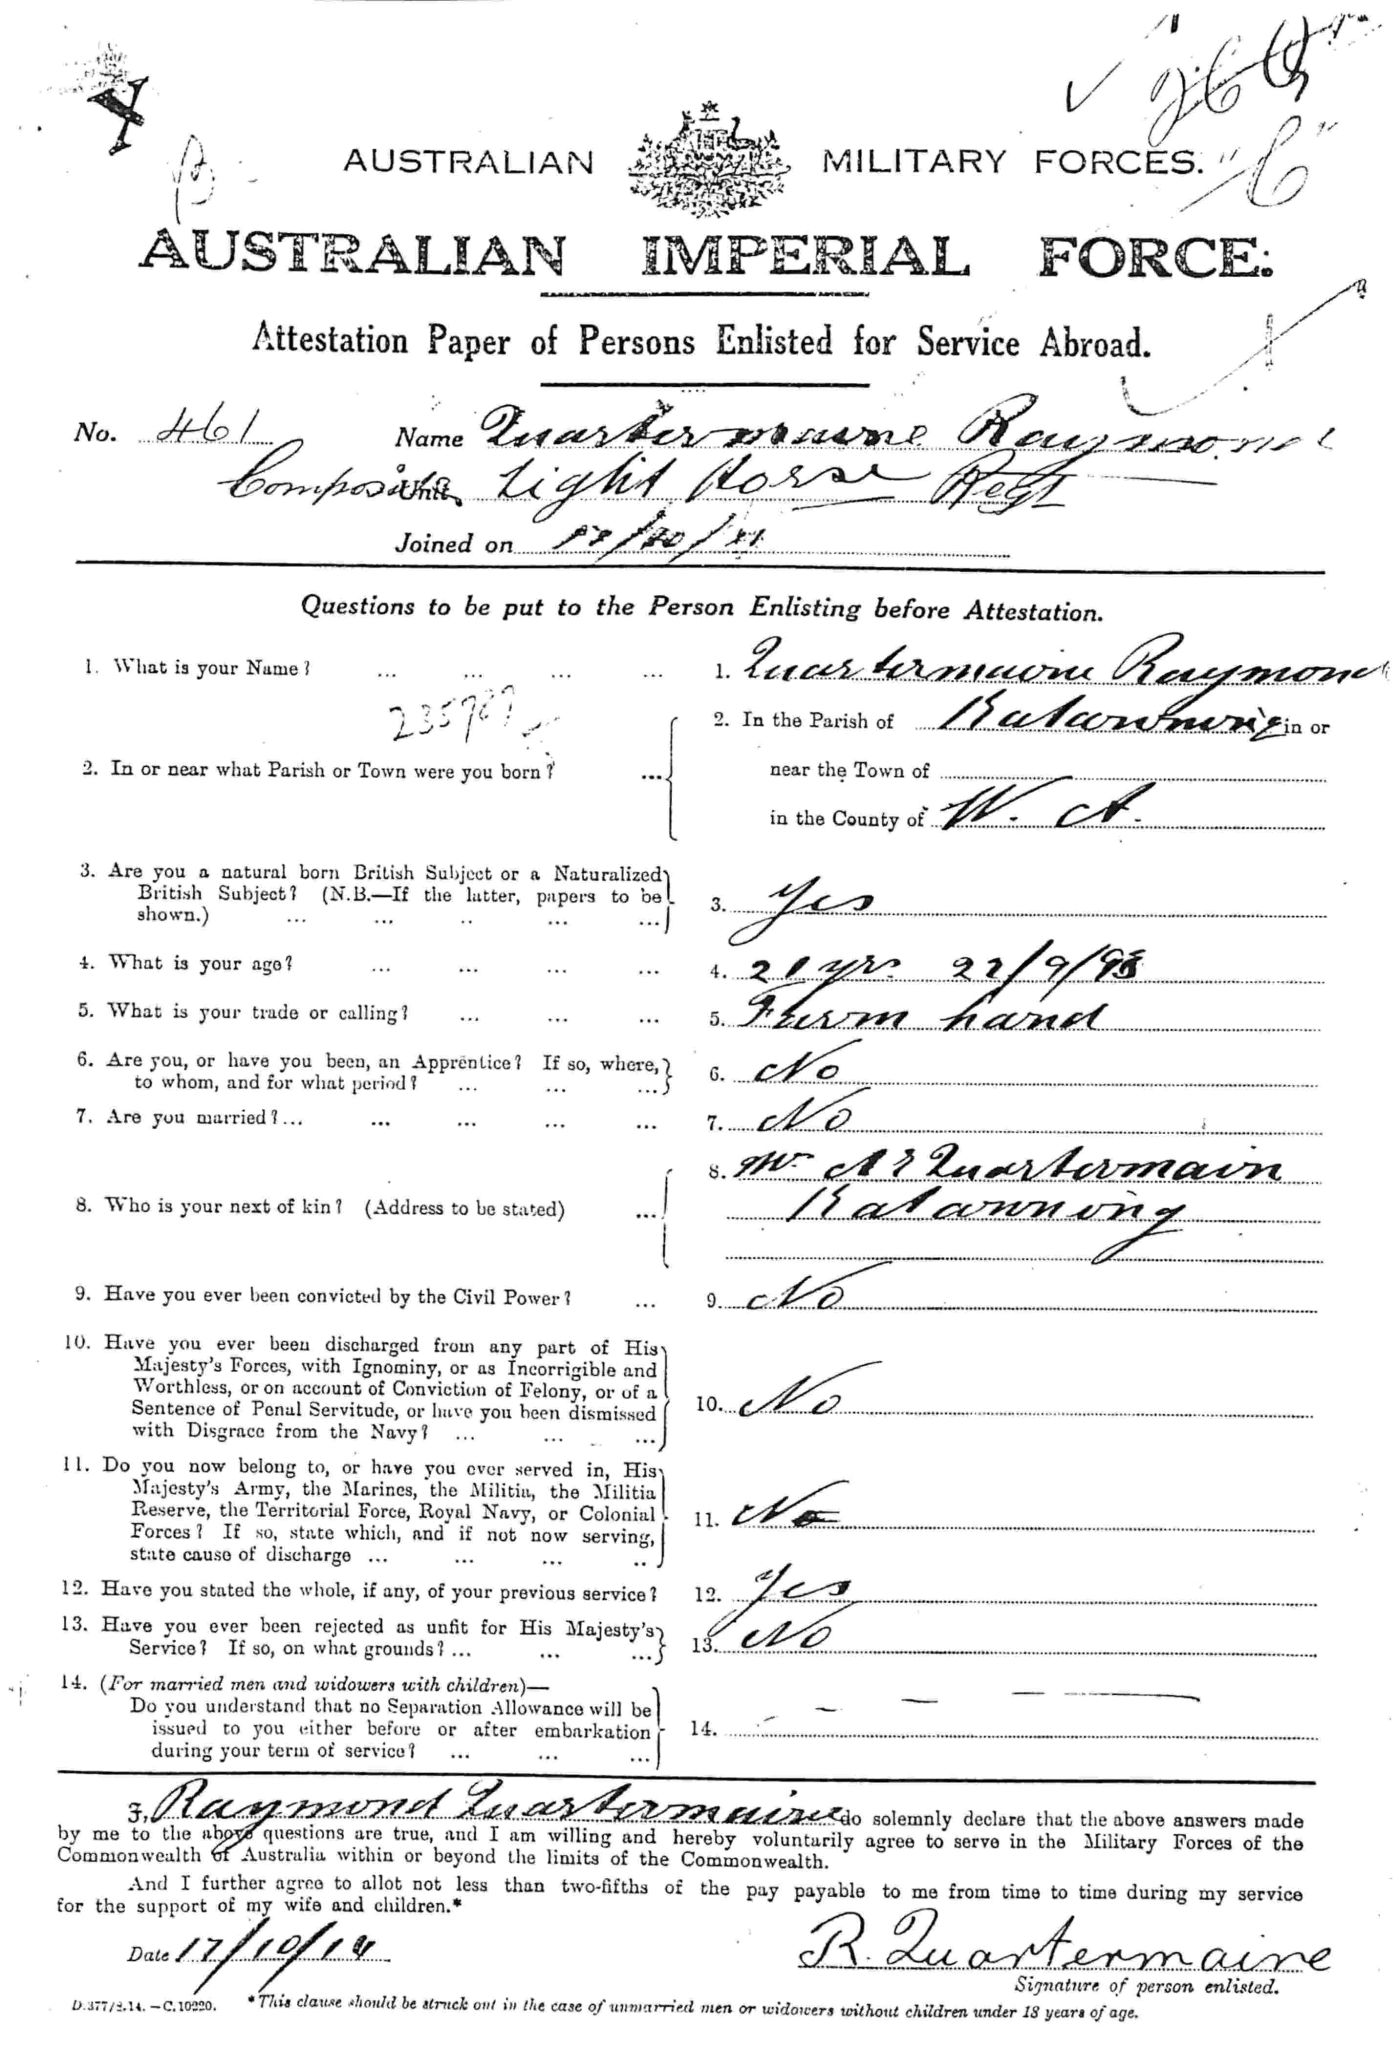 "C"
AUSTRALIAN MILITARY FORCES.
AUSTRALIAN IMPERIAL FORCE.
Attestation Paper of Persons Enlisted for Service Abroad.
No. 461 Name Quartermaine Raymond
Composite Unit Light Horse Regt
Joined on
Questions to be put to the Person Enlisting before Attestation.
1. What is your Name? ... ... ... ... 1. Quartermaine Raymond
2. In or near what Parish or Town were you born? ... 2. In the Parish of Katanning in or
near the Town of
in the County of W. A.
3. Are you a natural born British Subject or a Naturalized
British Subject? (N.B.—If the latter, papers to be
shown.) ... ... .. ... ... 3. Yes
4. What is your age? ... ... ... ... 4. 21 yrs. 22/9/93
5. What is your trade or calling? ... ... ... 5. Farm hand
6. Are you, or have you been, an Apprentice? If so, where,
to whom, and for what period? ... ... ... 6. No
7. Are you married? ... ... ... ... ... 7. No
8. Who is your next of kin? (Address to be stated) ... 8. Mr A E Quartermain
Katanning
9. Have you ever been convicted by the Civil Power? ... 9. No
10. Have you ever been discharged from any part of His
Majesty's Forces, with Ignominy, or as Incorrigible and
Worthless, or on account of Conviction of Felony, or of a
Sentence of Penal Servitude, or have you been dismissed
with Disgrace from the Navy? ... ... ... 10. No
11. Do you now belong to, or have you ever served in, His
Majesty's Army, the Marines, the Militia, the Militia
Reserve, the Territorial Force, Royal Navy, or Colonial
Forces? If so, state which, and if not now serving,
state cause of discharge ... ... ... .. 11. No
12. Have you stated the whole, if any, of your previous service? 12. Yes
13. Have you ever been rejected as unfit for His Majesty's
Service? If so, on what grounds? ... ... ... 13. No
14. (For married men and widowers with children)—
Do you understand that no Separation Allowance will be
issued to you either before or after embarkation
during your term of service? ... ... ... 14. — — —
I, Raymond Quartermaine do solemnly declare that the above answers made
by me to the above questions are true, and I am willing and hereby voluntarily agree to serve in the Military Forces of the
Commonwealth of Australia within or beyond the limits of the Commonwealth.
And I further agree to allot not less than two-fifths of the pay payable to me from time to time during my service
for the support of my wife and children.*
Date 17/10/14 R. Quartermaine
Signature of person enlisted.
D.377/8.14.—C.10220. *This clause should be struck out in the case of unmarried men or widowers without children under 18 years of age.